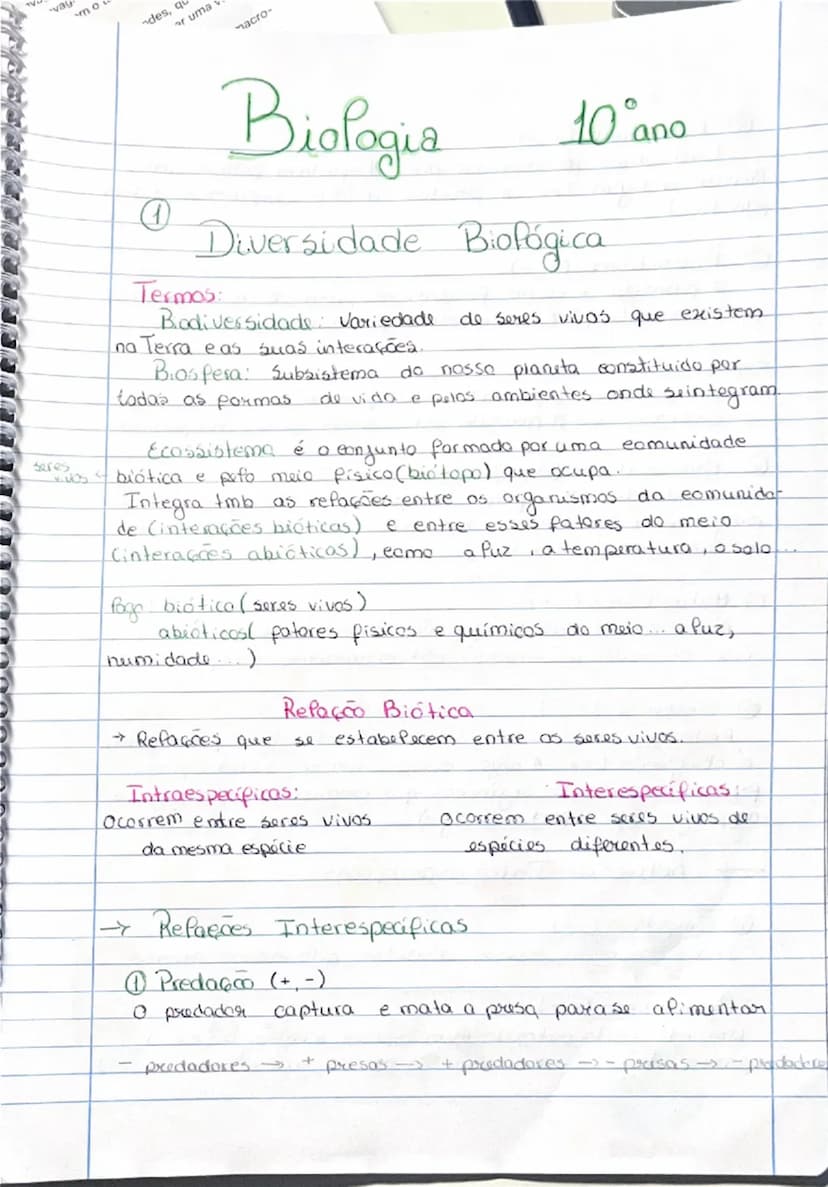 ndes, qu
macro-
Biologia 10º ano
① Diversidade Biológica
Termos:
Bodiversidade: Variedade de seres vivos que existem
na Terra e as suas interações.
Biosfera: Subsistema do nosso planeta constituido por
todas as formas de vida e pelos ambientes onde se integram.
Ecossistema é o conjunto formado por uma comunidade
seres vivos
biótica e pelo meio físico (biótopo) que ocupa.
Integra tmb as relações entre os organismos da comunida-
de (interações bióticas) e entre esses fatores do meio
(interações abióticas), como a luz, a temperatura, o solo...
logo: biótica (seres vivos)
abióticos( fatores físicos e químicos do meio... a luz,
humidade...)
Relação Biótica
→ Relações que se estabelecem entre os seres vivos.
Intraespecíficas: Interespecíficas:
Ocorrem entre seres vivos Ocorrem entre seres vivos de
da mesma espécie espécies diferentes.
→ Relações Interespecíficas
① Predação (+,-)
O predador captura e mata a presa para se alimentar
- predadores → + presas → + predadores → - presas → - predadores